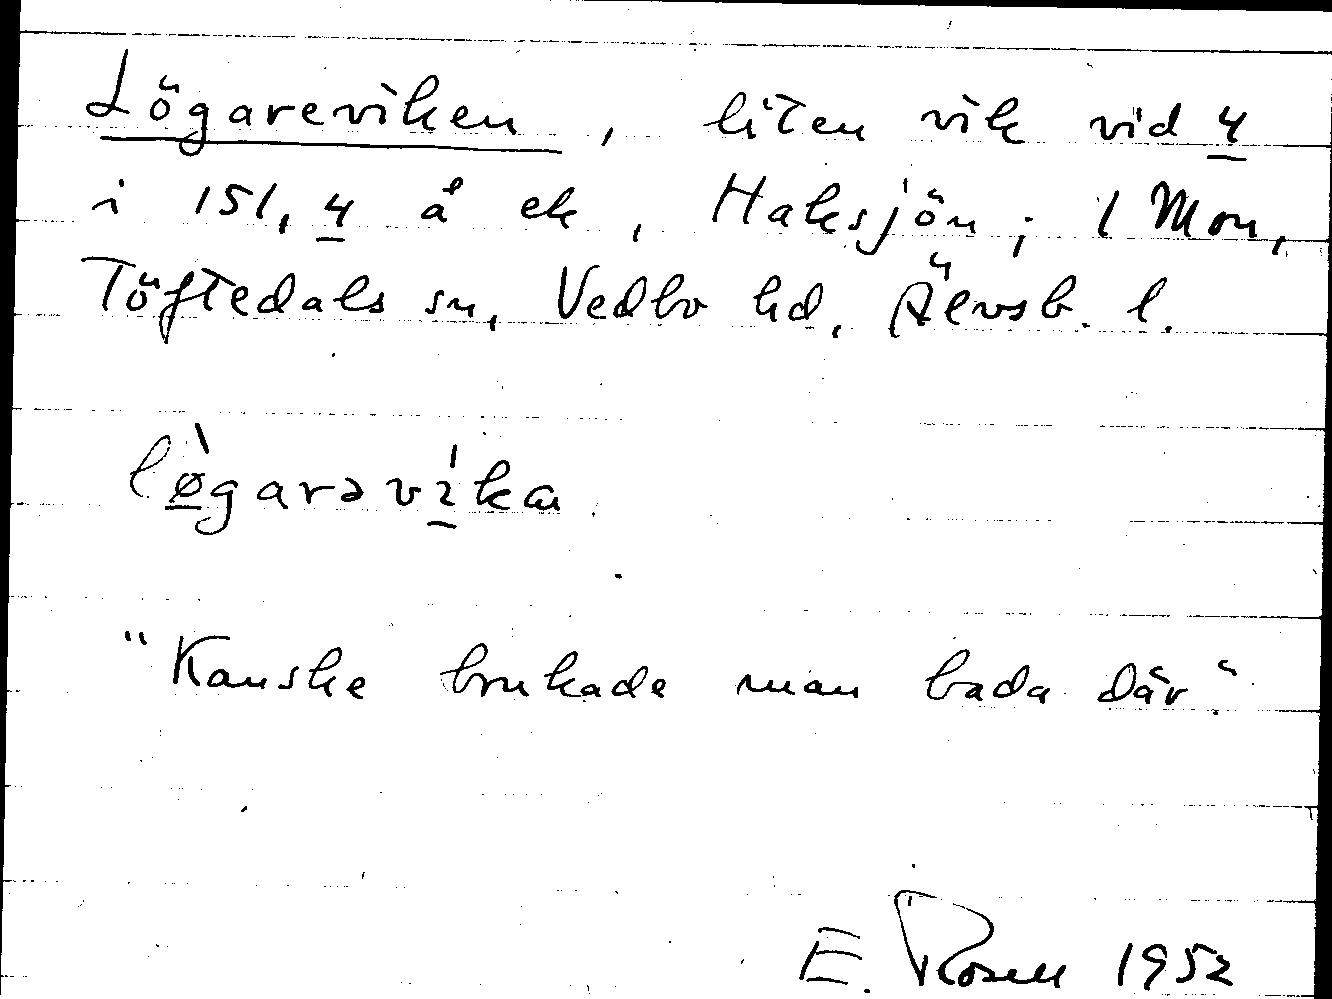 Lögareviken, liten vik vid 4
i 151, 4 å ek, Haksjön; 1 Mon,
Töftedals sn, Vedbo hd, Älvsb. l.
lø̀garəvíka
"Kanske brukade man bada där."
E. Rosell 1952